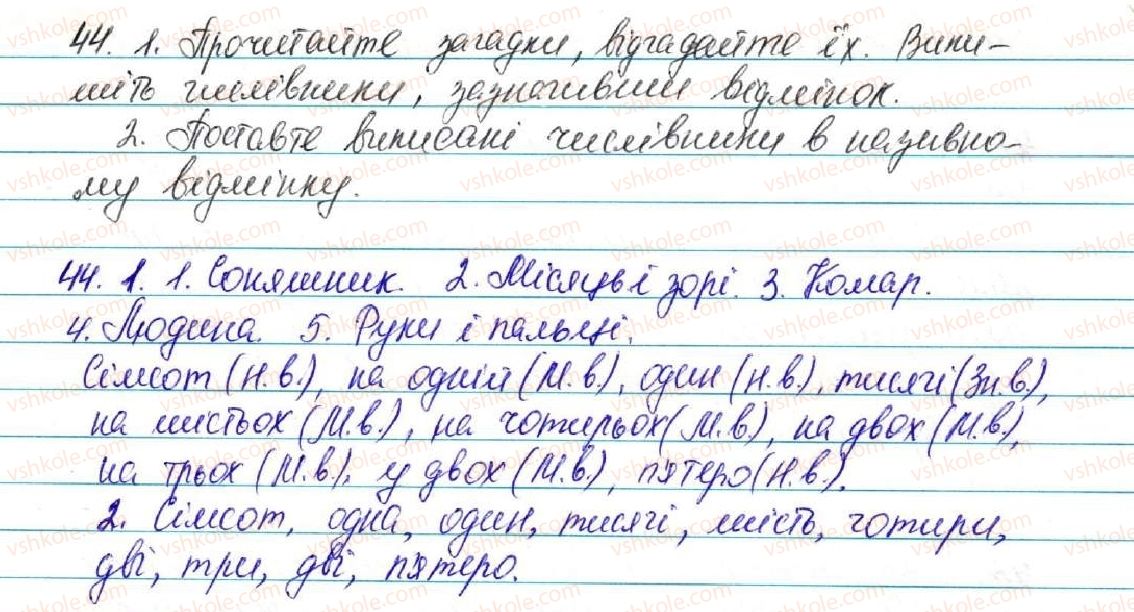 44. 1. Прочитайте загадки, відгадайте їх. Випи-
шіть числівники, зазначивши відмінок.
2. Поставте виписані числівники в називно-
му відмінку.
44. 1. 1. Соняшник. 2. Місяць і зорі. 3. Комар.
4. Людина. 5. Руки і пальці.
Сімсот (Н.в.), на одній (М.в.), один (Н.в.), тисячі (Зн.в.),
на шістьох (М.в.), на чотирьох (М.в.), на двох (М.в.),
на трьох (М.в.), у двох (М.в.), п'ятеро (Н.в.).
2. Сімсот, одна, один, тисячі, шість, чотири,
дві, три, дві, п'ятеро.